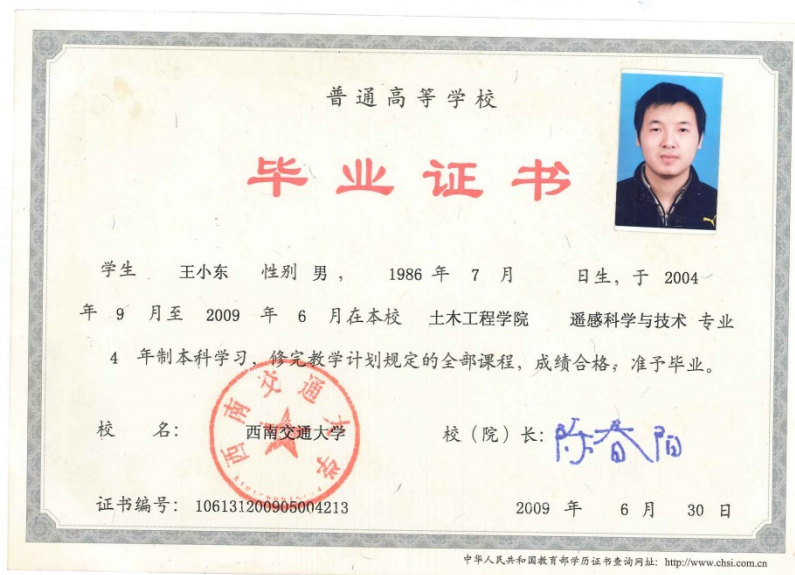 普通高等学校
毕业证书
学生 王小东 性别 男， 1986 年 7 月 日生，于 2004
年 9 月至 2009 年 6 月在本校 土木工程学院 遥感科学与技术 专业
4 年制本科学习，修完教学计划规定的全部课程，成绩合格，准予毕业。
校 名： 西南交通大学 校（院）长：陈春阳
西南交通大学
证书编号： 106131200905004213 2009 年 6 月 30 日
中华人民共和国教育部学历证书查询网址： http://www.chsi.com.cn